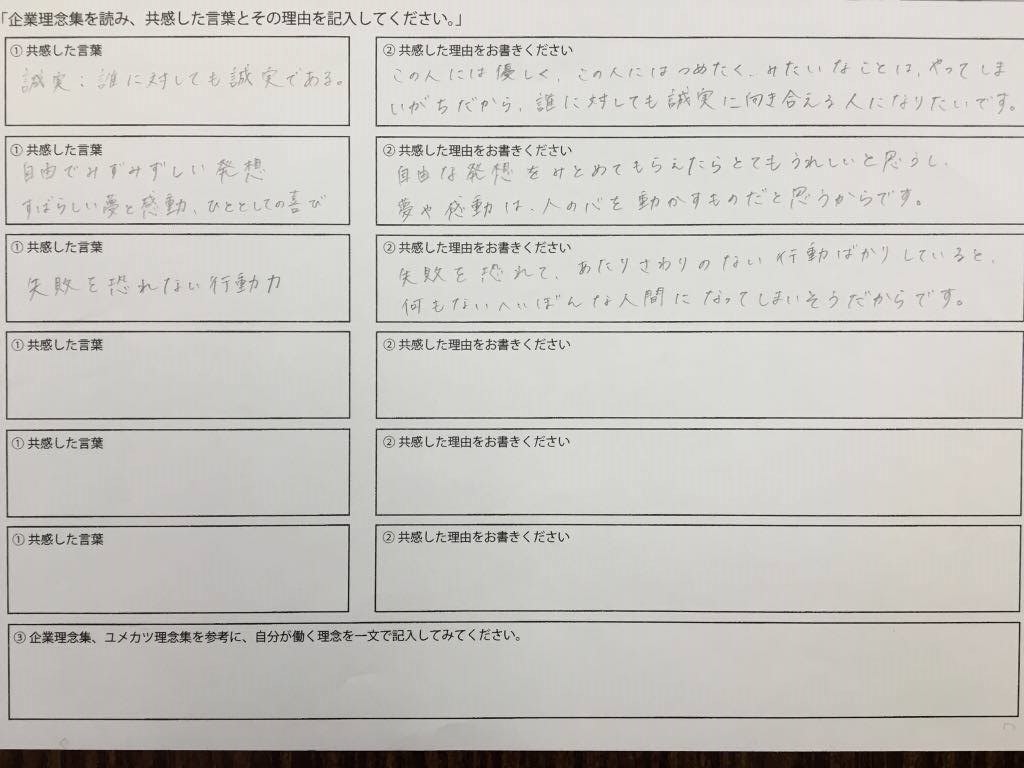 「企業理念集を読み、共感した言葉とその理由を記入してください。」
① 共感した言葉
誠実：誰に対しても誠実である。
② 共感した理由をお書きください
この人には優しく、この人にはつめたく、みたいなことは、やってしま
いがちだから、誰に対しても誠実に向き合える人になりたいです。
① 共感した言葉
自由でみずみずしい発想
すばらしい夢と感動、ひととしての喜び
② 共感した理由をお書きください
自由な発想をみとめてもらえたらとてもうれしいと思うし、
夢や感動は、人の心を動かすものだと思うからです。
① 共感した言葉
失敗を恐れない行動力
② 共感した理由をお書きください
失敗を恐れて、あたりさわりのない行動ばかりしていると、
何もないへいぼんな人間になってしまいそうだからです。
① 共感した言葉
② 共感した理由をお書きください
① 共感した言葉
② 共感した理由をお書きください
① 共感した言葉
② 共感した理由をお書きください
③ 企業理念集、ユメカツ理念集を参考に、自分が働く理念を一文で記入してみてください。